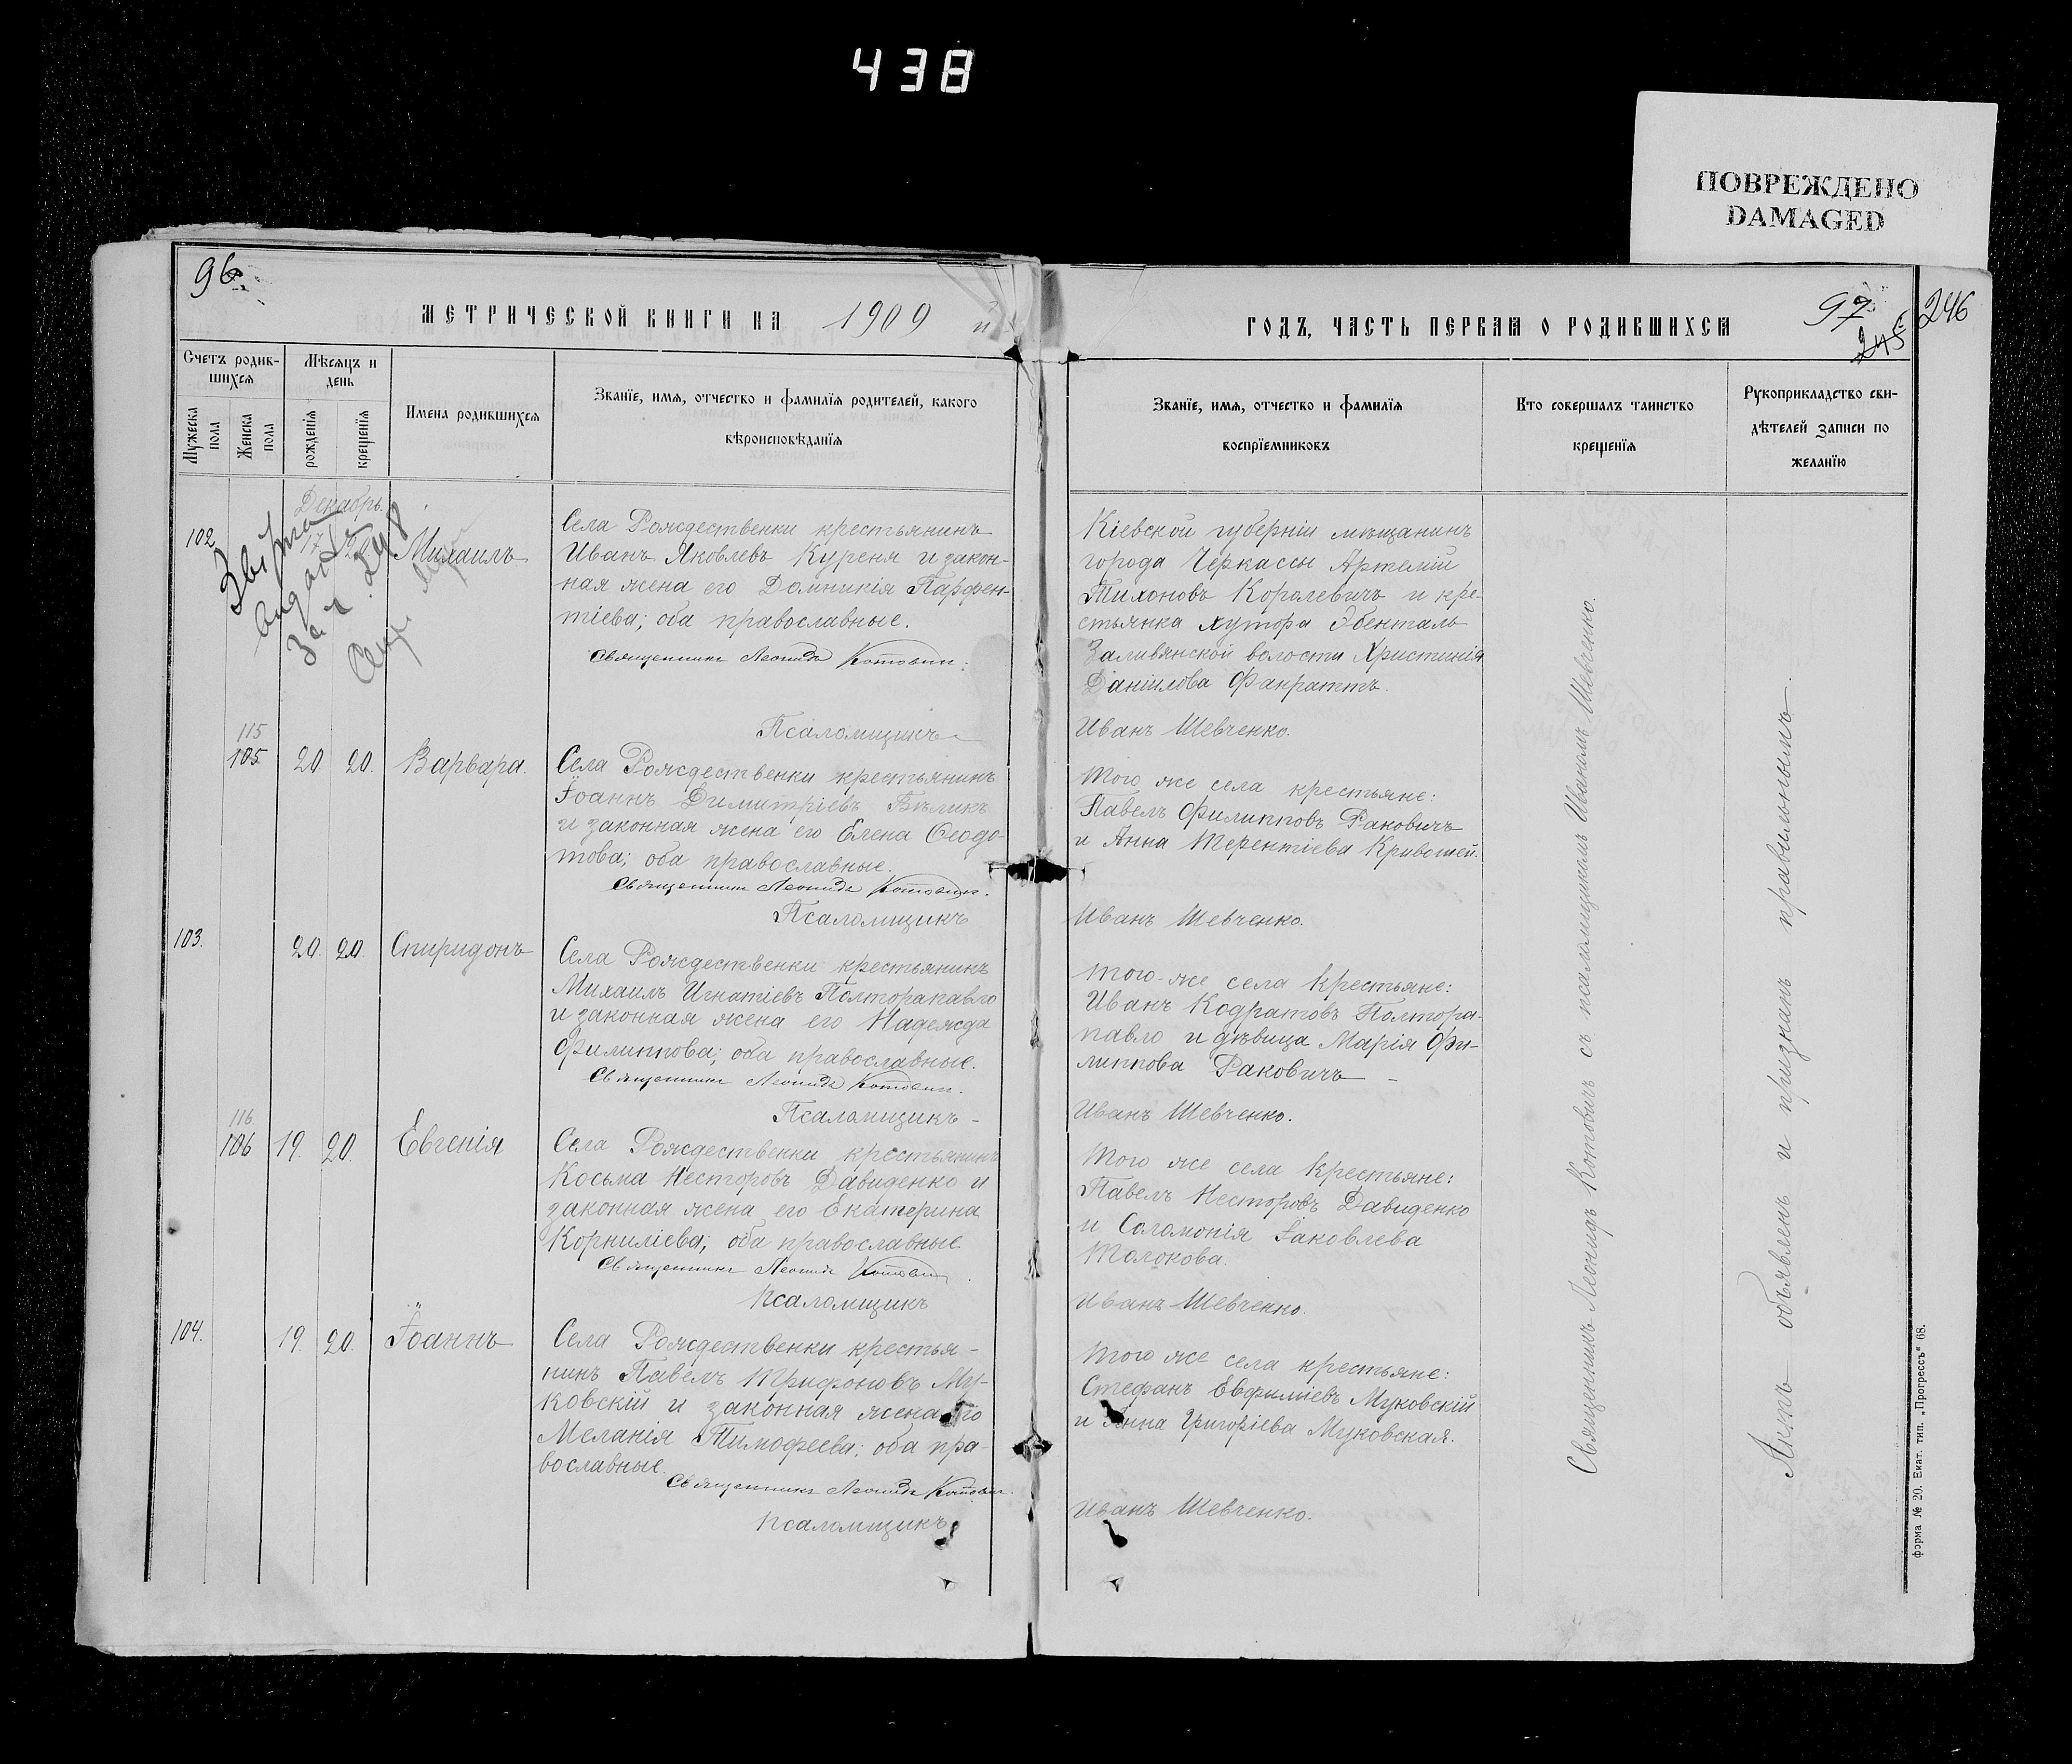 438
ПОВРЕЖДЕНО
DAMAGED
96.
МЕТРИЧЕСКОЙ КНИГИ НА 1909 й
Счетъ родив-
шихся
Мѣсяцъ и
день
Мужеска
пола
Женска
пола
рожденія
крещенія
Имена родившихся
Званїе, имя, отчество и фамилїя родителей, какого
вѣроисповѣданїя
Декабрь.
102
Михаилъ
Села Рождественки крестьянинъ
Иванъ Яковлевъ Куреня и закон-
ная жена его Домникія Парфен-
тіева; оба православные.
Священникъ Леонидъ Котовичъ.
Псаломщикъ
115
105
20
20.
Варвара.
Села Рождественки крестьянинъ
Іоаннъ Димитріевъ Бѣликъ
и законная жена его Елена Ѳеодо-
това; оба православные.
Священникъ Леонидъ Котовичъ.
Псаломщикъ
103.
20.
20.
Спиридонъ
Села Рождественки крестьянинъ
Михаилъ Игнатіевъ Полторапавло
и законная жена его Надежда
Филиппова; оба православные.
Священникъ Леонидъ Котовичъ.
Псаломщикъ
116
106
19.
20.
Евгенія
Села Рождественки крестьянинъ
Косьма Несторовъ Давиденко и
законная жена его Екатерина
Корниліева; оба православные
Священникъ Леонидъ Котовичъ.
Псаломщикъ
104.
19.
20.
Іоаннъ
Села Рождественки крестья-
нинъ Павелъ Трифоновъ Му-
ковскій и законная жена его
Меланія Тимофеева; оба пра-
вославные.
Священникъ Леонидъ Котович.
Псаломщикъ
97.
245
246
ГОДЪ, ЧАСТЬ ПЕРВАЯ О РОДИВШИХСЯ
Званїе, имя, отчество и фамилїя
воспрїемниковъ
Кто совершалъ таинство
крещенїя
Рукоприкладство сви-
дѣтелей записи по
желанїю
Кіевской губерніи мѣщанинъ
города Черкассы Артемій
Тихоновъ Королевичъ и кре-
стьянка хутора Эбенталь
Заливянской волости Христинія
Даніилова Фанратъ.
Иванъ Шевченко.
Того же села крестьяне:
Павелъ Филипповъ Раковичъ
и Анна Терентіева Кривошей.
Иванъ Шевченко.
Того-же села крестьяне:
Иванъ Кодратовъ Полтора-
павло и дѣвица Марія Фи-
липпова Раковичъ
Иванъ Шевченко.
Того же села крестьяне:
Павелъ Несторовъ Давиденко
и Соломонія Іаковлева
Толокова.
Иванъ Шевченко.
Того же села крестьяне:
Стефанъ Евфиміевъ Муковскій
и Анна Григоріева Муковская.
Иванъ Шевченко.
Священникъ Леонидъ Котовичъ съ псаломщикомъ Иваномъ Шевченко.
Актъ объявленъ и признанъ правильнымъ.
форма № 20. Екат. тип. „Прогрессъ“ 68.